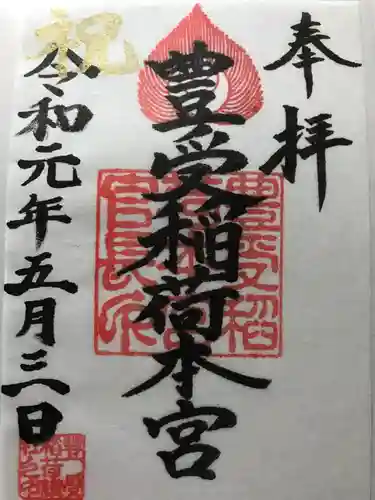 奉拝
豊受稲荷本宮
祝
令和元年五月三日